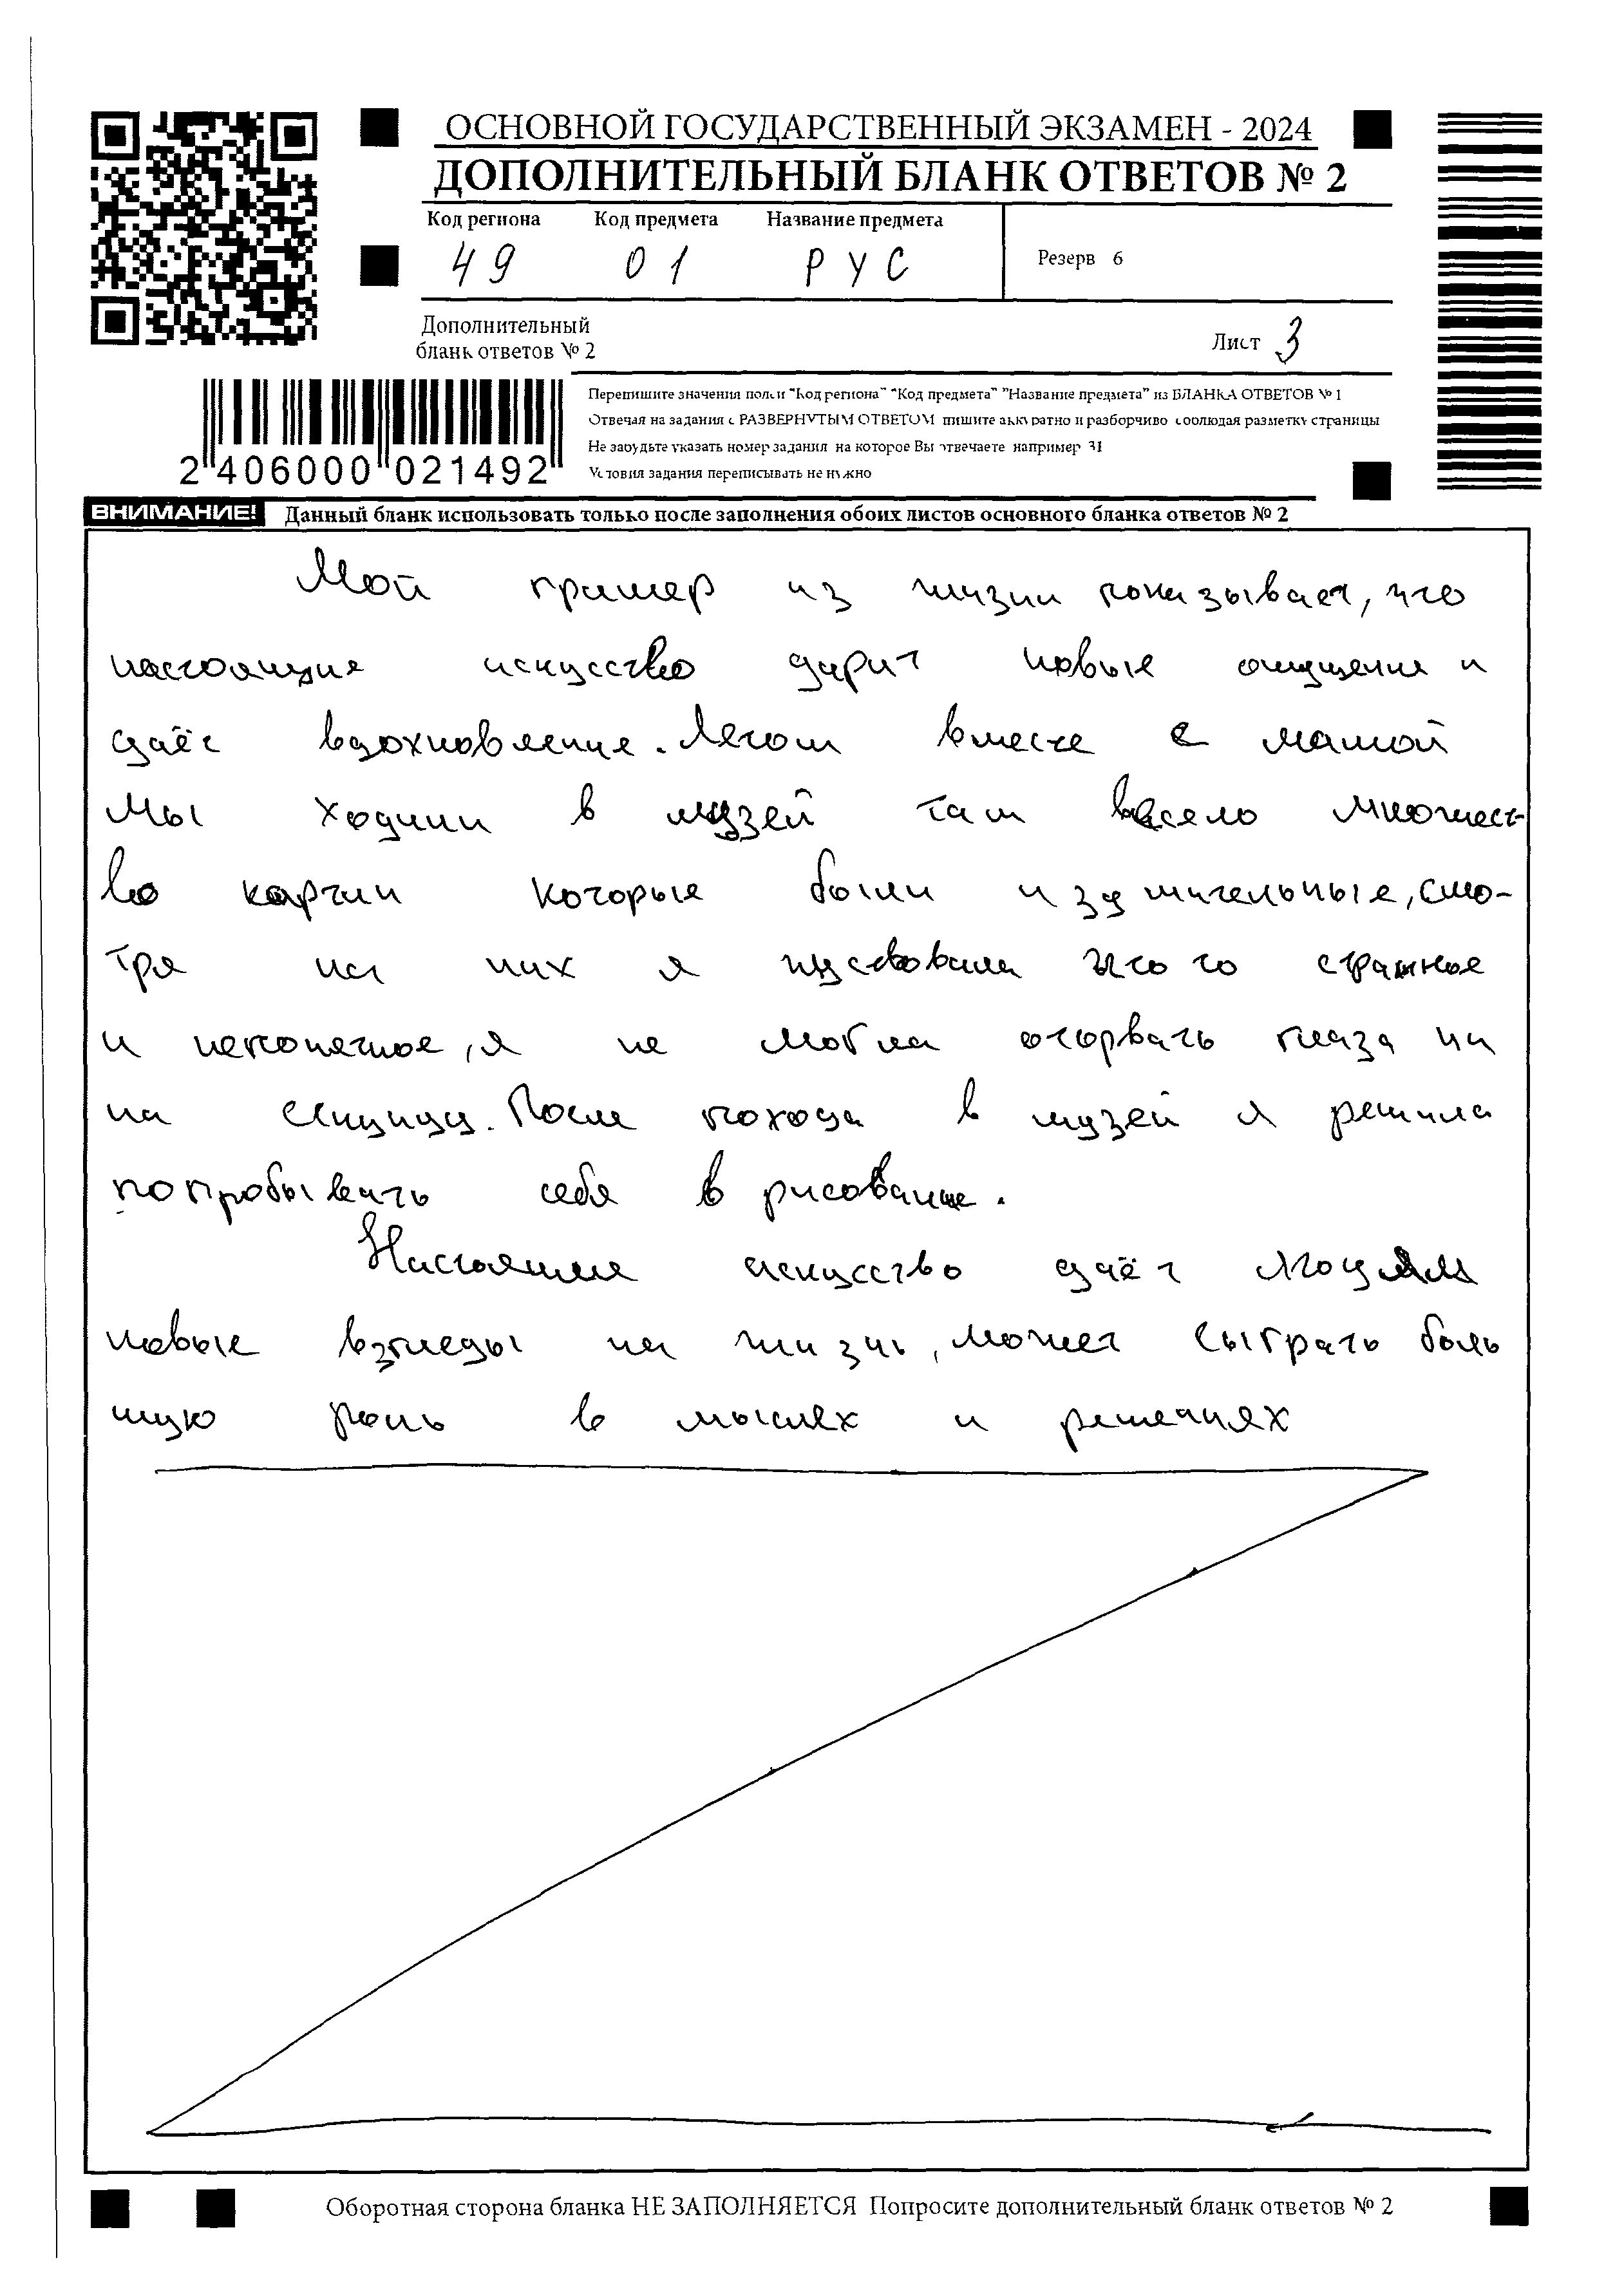 ОСНОВНОЙ ГОСУДАРСТВЕННЫЙ ЭКЗАМЕН - 2024
ДОПОЛНИТЕЛЬНЫЙ БЛАНК ОТВЕТОВ № 2
Код региона Код предмета Название предмета
49 01 РУС
Резерв 6
Дополнительный
бланк ответов № 2
Лист 3
Перепишите значения полей "Код региона" "Код предмета" "Название предмета" из БЛАНКА ОТВЕТОВ № 1
Отвечая на задания с РАЗВЕРНУТЫМ ОТВЕТОМ пишите аккуратно и разборчиво соблюдая разметку страницы
Не забудьте указать номер задания на которое Вы отвечаете например 31
Условия задания переписывать не нужно
2 406000 021492
ВНИМАНИЕ! Данный бланк использовать только после заполнения обоих листов основного бланка ответов № 2
Мой пример из жизни показывает, что
настоящие искусство дарит новые ощущения и
даёт вдохновление. Летом вместе с мамой
мы ходили в музей там весело множест-
во картин которые были изумительные, смо-
тря на них я чуствовала что то странное
и непонятное, я не могла оторвать глаза ни
на секунду. После похода в музей я решила
попробывать себя в рисование.
Настоящие искусство даёт людям
новые взгляды на жизнь, может сыграть боль
шую роль в мыслях и решениях
Оборотная сторона бланка НЕ ЗАПОЛНЯЕТСЯ Попросите дополнительный бланк ответов № 2